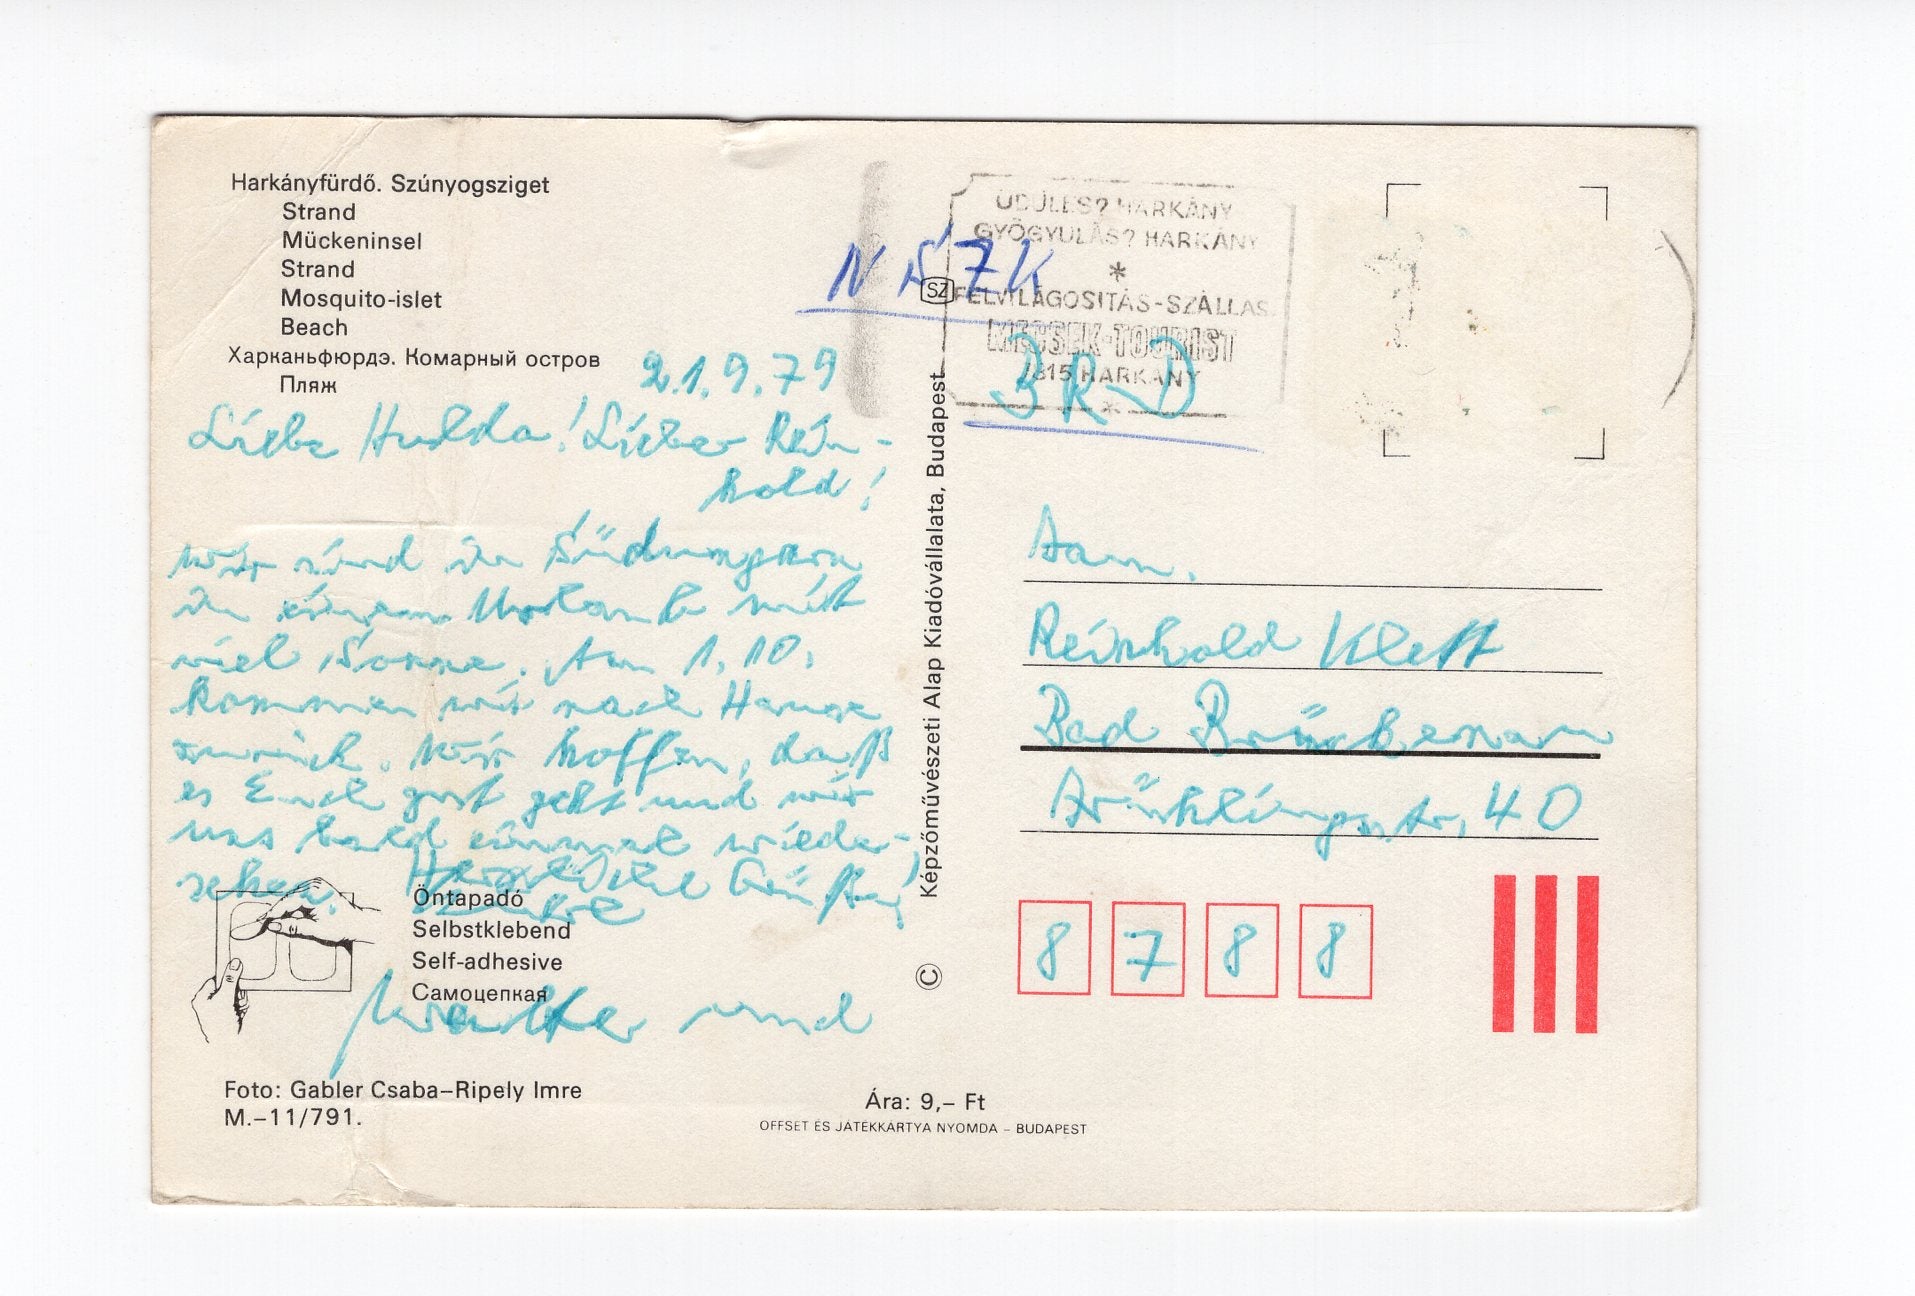 Harkányfürdő. Szúnyogsziget
Strand
Mückeninsel
Strand
Mosquito-islet
Beach
Харканьфюрдэ. Комарный остров
Пляж
21.9.79
Liebe Hulda! Lieber Rein-
hold!
wir sind in Südungarn
in einem Urlaub mit
viel Sonne. Am 1.10.
kommen wir nach Hause
zurück. Wir hoffen, daß
es Euch gut geht und wir
uns bald einmal wieder-
sehen. Herzliche Grüße,
Walter und
Öntapadó
Selbstklebend
Self-adhesive
Самоцепкая
Foto: Gabler Csaba–Ripely Imre
M.–11/791.
Ára: 9,– Ft
OFFSET ÉS JÁTÉKKÁRTYA NYOMDA – BUDAPEST
© Képzőművészeti Alap Kiadóvállalata, Budapest
SZ
NSZK
ÜDÜLÉS? HARKÁNY
GYÓGYULÁS? HARKÁNY
*
FELVILÁGOSITÁS-SZÁLLÁS
MECSEK-TOURIST
7815 HARKÁNY
BRD
Fam.
Reinhold Klett
Bad Brückenau
Frühlingstr. 40
8 7 8 8